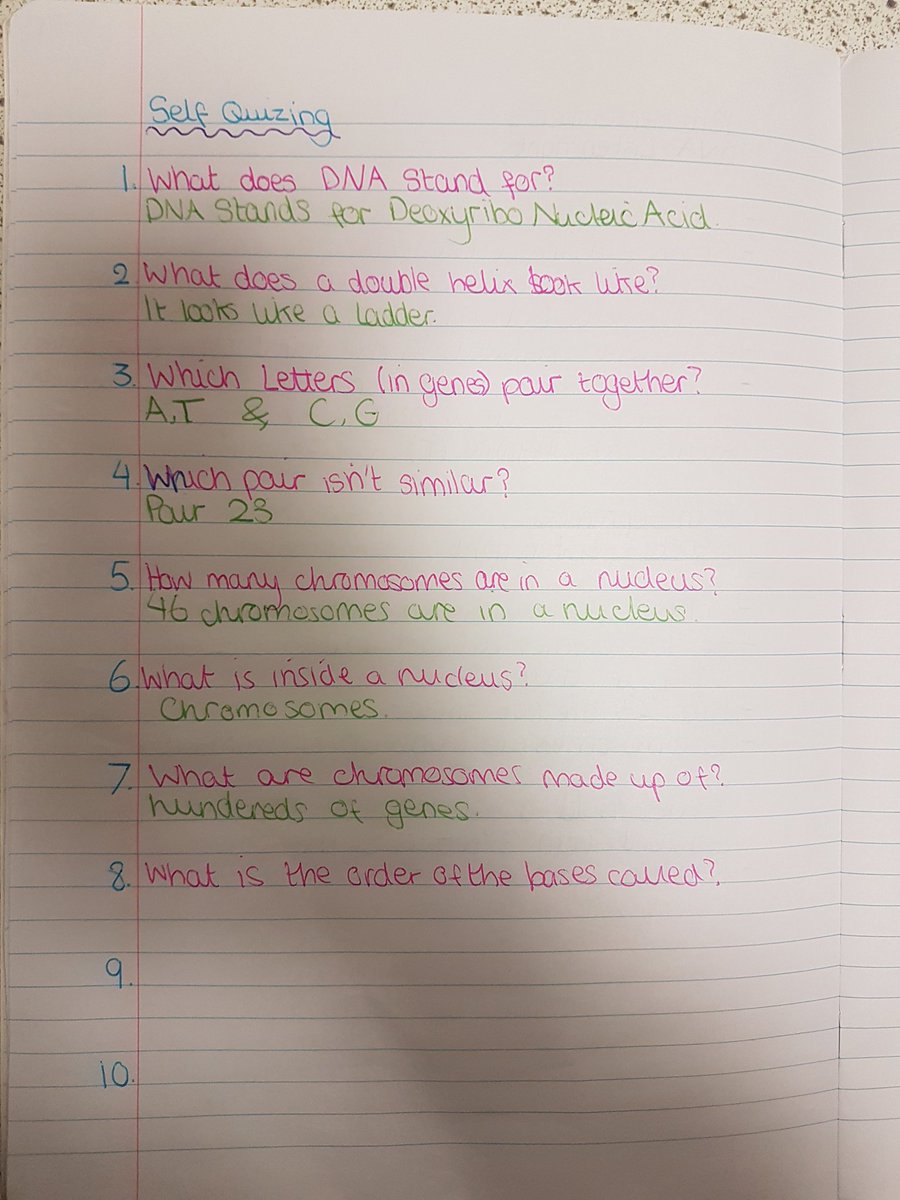 Self Quizing
1. What does DNA Stand for?
DNA Stands for Deoxyribo Nucleic Acid.
2 What does a double helix look like?
It looks like a ladder.
3. Which Letters (in genes) pair together?
A,T & C,G
4. Which pair isn't similar?
Pair 23
5. How many chromosomes are in a nucleus?
46 chromosomes are in a nucleus.
6. What is inside a nucleus?
Chromosomes.
7. What are chromosomes made up of?
hundereds of genes.
8. What is the order of the bases called?
9.
10.